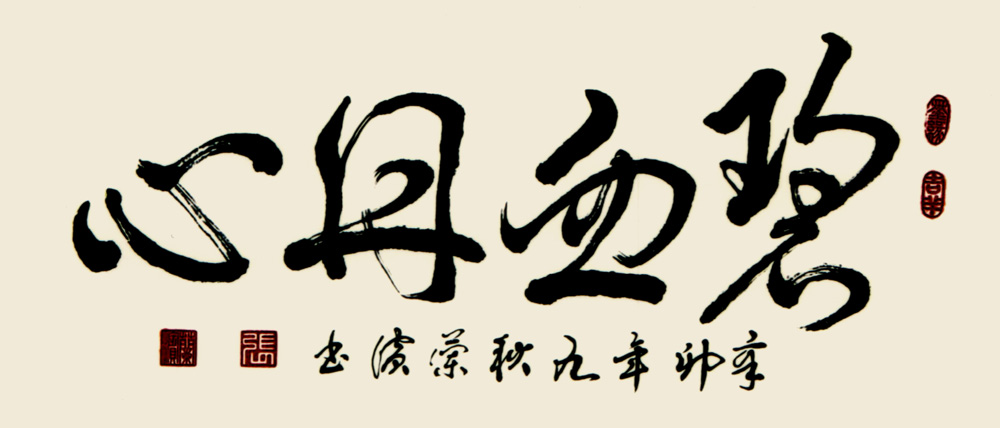 碧血丹心
辛卯年九秋荣濱书
張